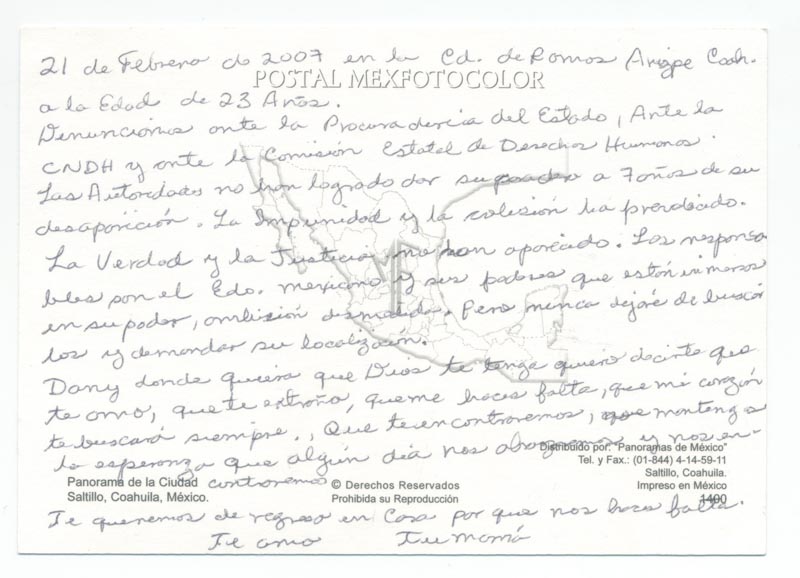 21 de Febrero de 2007 en la Cd. de Ramos Arizpe Coah.
POSTAL MEXFOTOCOLOR
a la Edad de 23 Años.
Denuncionos ante la Procuradercia del Estado, Ante la
CNDH y ante la Comisión Estatal de Desechos Humanos.
Las Autoridades no han logrado dar su a 7 años de su
desaparición. La Impunidad y la colisión ha prevalecido.
La Verdad y la Justicia no han aparecido. Los responsa
bles son el Edo. mexicano y sus poderes que están inmersos
en su poder, ambisión desmedida. Pero nunca dejaré de buscar
los y demandar su localización.
Dany donde quiera que Dios te tenga quiero decirte que
te amo, que te extraño, que me haces falta, que mi corazón
te buscará siempre., Que te encontraremos, que mantenga
la esperanza que algún día nos abrazaremos y nos en-
contraremos
Distribuido por: "Panoramas de México"
Tel. y Fax.: (01-844) 4-14-59-11
Saltillo, Coahuila.
Impreso en México
1400
Panorama de la Ciudad
Saltillo, Coahuila, México.
© Derechos Reservados
Prohibida su Reproducción
Te queremos de regreso en Casa por que nos haces falta.
Te amo Tu mamá